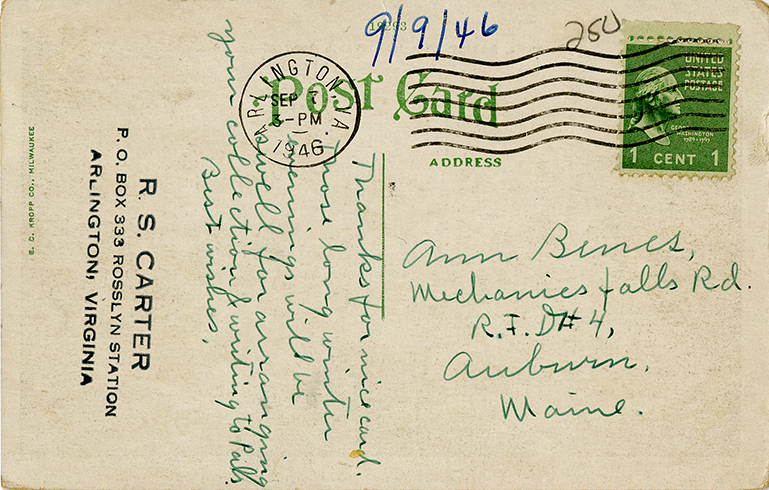 9/9/46
250
19293
Post Card
ADDRESS
ARLINGTON, VA.
SEP 7
3-PM
1946
UNITED
STATES
POSTAGE
GEORGE
WASHINGTON
1789-1797
1 CENT 1
Ann
Mechanics falls Rd.
R.F.D# 4,
Auburn,
Maine.
Thanks for nice card.
Those long winter
evenings will be
swell for arranging
your collection & writing to Pals.
Best wishes,
R. S. CARTER
P. O. BOX 333 ROSSLYN STATION
ARLINGTON, VIRGINIA
E. C. KROPP CO., MILWAUKEE